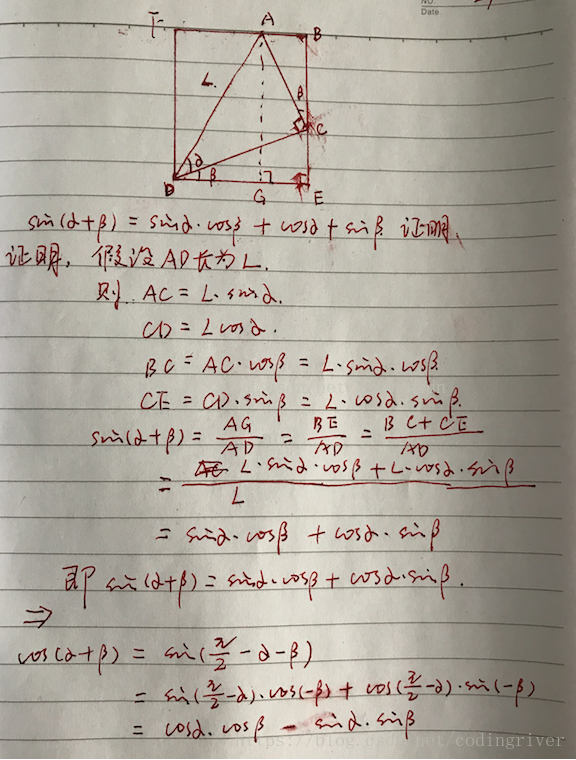 NO.
Date
F A B
L
β
C
α
β
D G E
sin(α+β) = sinα·cosβ + cosα + sinβ 证明.
证明, 假设AD长为L.
则 AC = L·sinα.
CD = Lcosα.
BC = AC·cosβ = L·sinα·cosβ.
CE = CD·sinβ = L·cosα·sinβ.
sin(α+β) = AG/AD = BE/AD = BC+CE/AD
= L·sinα·cosβ + L·cosα·sinβ / L
= sinα·cosβ + cosα·sinβ
即 sin(α+β) = sinα·cosβ + cosα·sinβ.
⇒
cos(α+β) = sin(π/2-α-β)
= sin(π/2-α)·cos(-β) + cos(π/2-α)·sin(-β)
= cosα·cosβ - sinα·sinβ
https://blog.csdn.net/codingriver